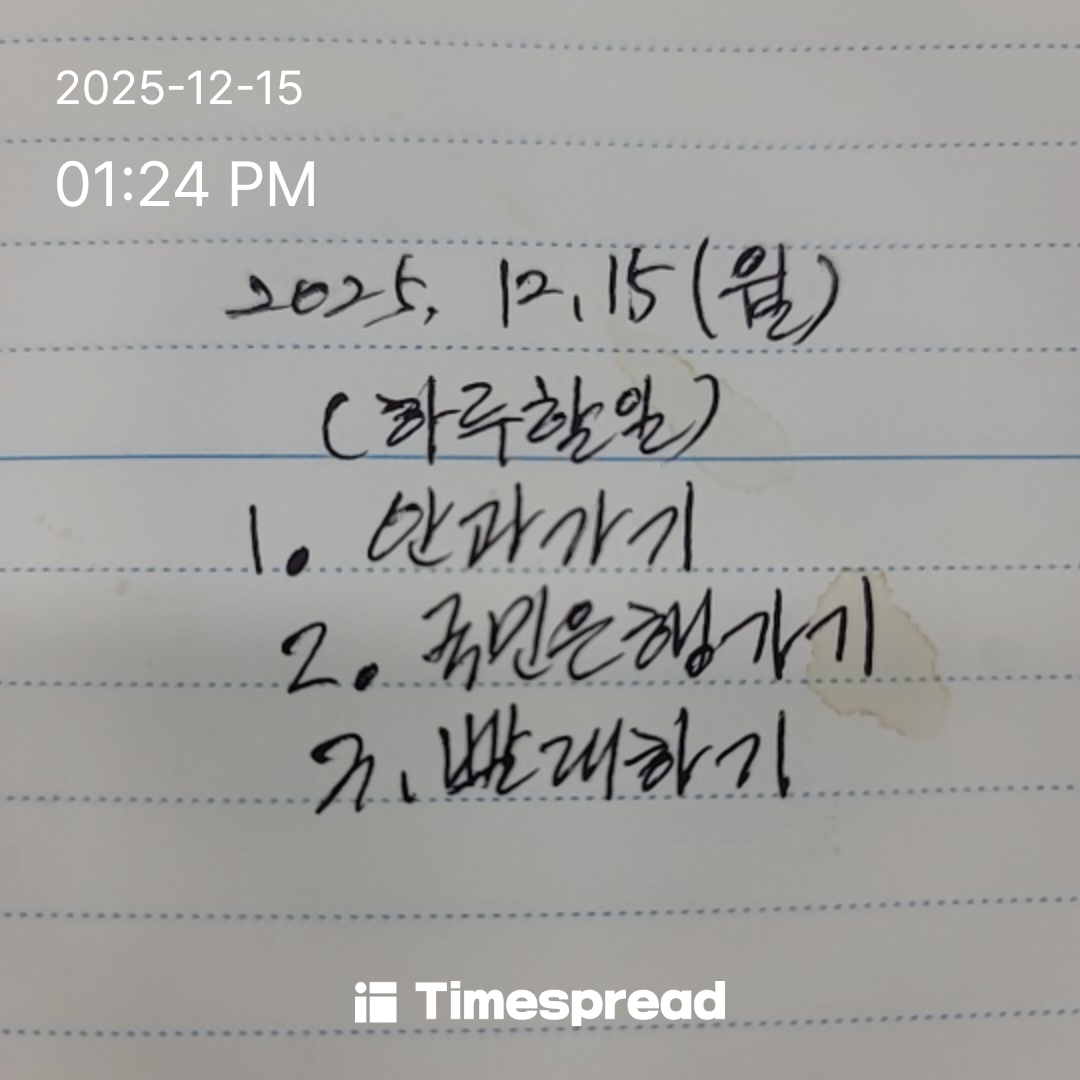 2025-12-15
01:24 PM
2025. 12. 15 (월)
(하루할일)
1. 안과가기
2. 국민은행가기
3. 빨래하기
Timespread